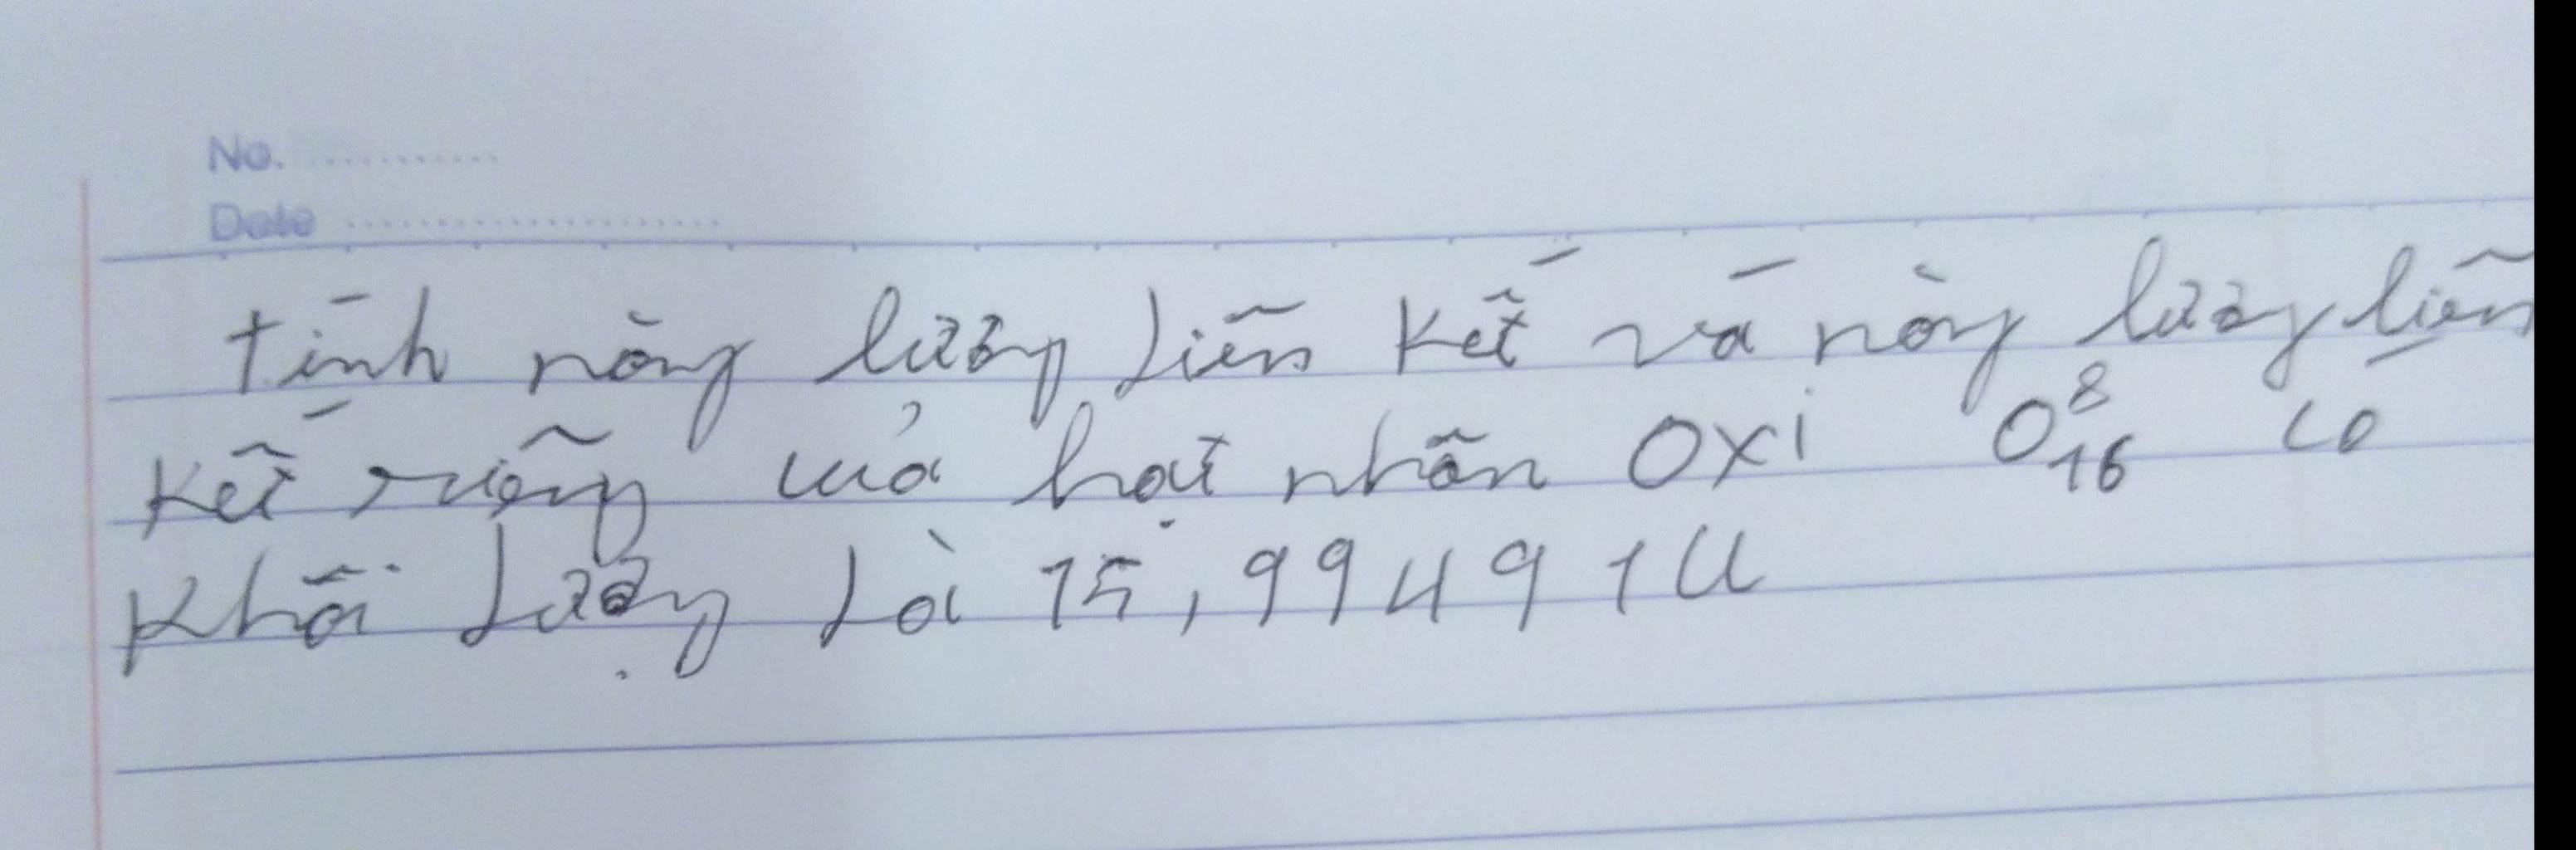 No. ............
Date ........................
tính năng lượng Liên Kết và năng lượng liên
Kết riêng của hạt nhân OXi O⁸₁₆ có
Khối Lượng Là 15,99491U